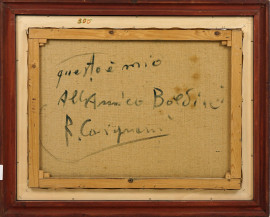 questo è mio
All'Amico Boldini
R. Carignani